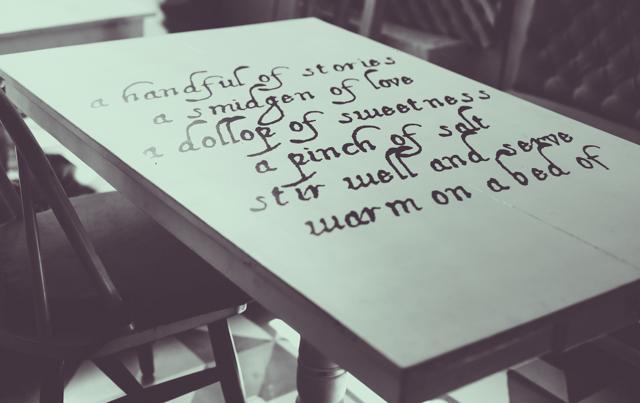 a handful of stories
a smidgen of love
a dollop of sweetness
a pinch of salt
stir well and serve
warm on a bed of